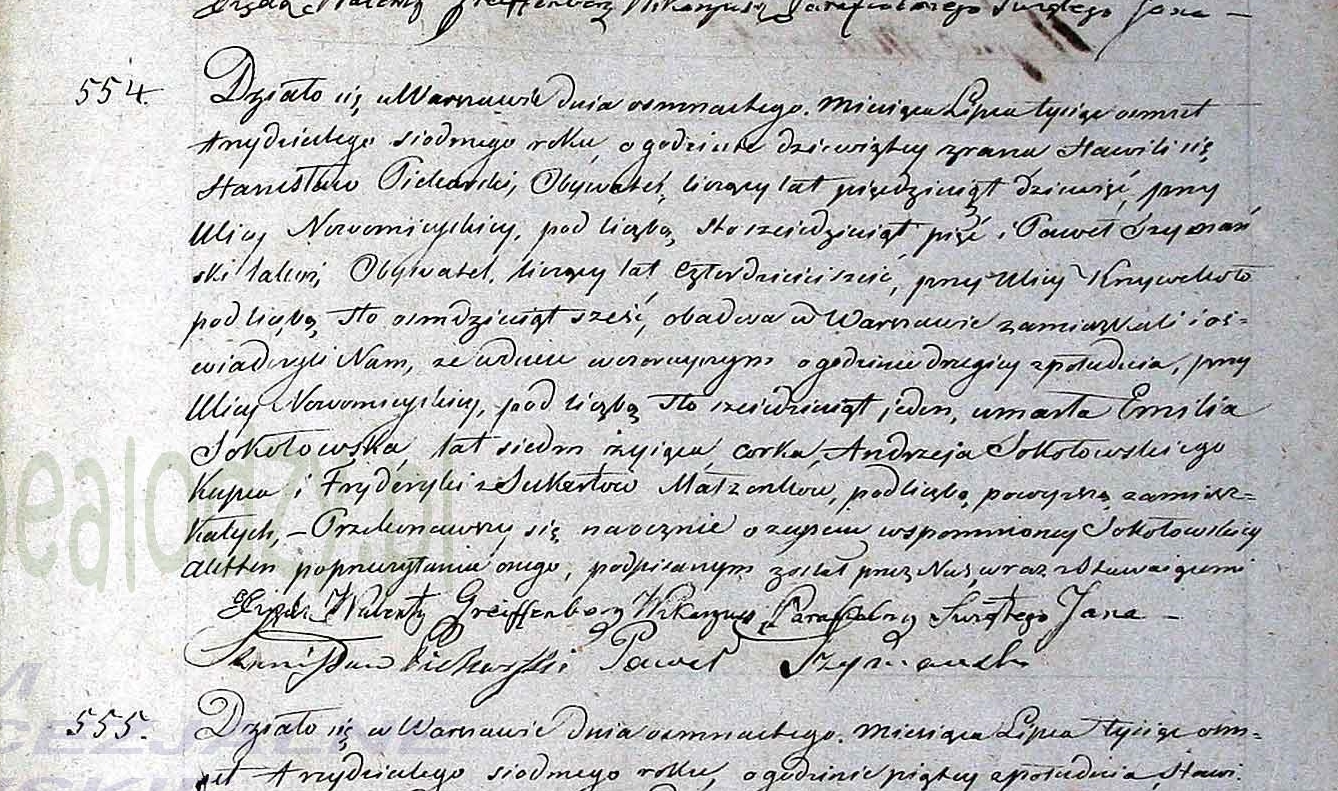 Xiądz Walenty Greiffenberg Wikaryusz Parafialnego Swiętego Jana —
554. Działo się w Warszawie dnia osmnastego. Miesiąca Lipca tysiąc osmset
trzydziestego siodmego roku, o godzinie dziewiątey zrana Stawili się
Stanisław Piekarski, Obywatel, liczący lat pięćdziesiąt dziewięć, przy
Ulicy Nowomieyskiey, pod liczbą sto sześćdziesiąt pięć i Paweł Szymań
ski takiż, Obywatel, liczący lat czterdzieści sześć, przy Ulicy Krzywekoło
pod liczbą sto osmdziesiąt sześć, obadwa w Warszawie zamieszkali i oś=
wiadczyli Nam, że w dniu wczorayszym o godzinie drugiey z południa, przy
Ulicy Nowomieyskiey, pod liczbą sto sześćdziesiąt jeden, umarła Emilia
Sokołowska, lat siedm żyjąca, corka, Andrzeja Sokołowskiego
Kupca i Fryderyki z Sukertow Małżonkow, pod liczbą powyższą zamiesz=
kałych, — Przekonawszy się naocznie o zeysciu wspomnioney Sokołowskiey
Akt ten po przeczytaniu onego, podpisanym został przez Nas, wraz z Stawaiącemi
Xiądz Walenty Greiffenberg Wikaryusz Parafialny Swiętego Jana —
Stanisław Piekarski Paweł Szymanski
555. Działo się w Warszawie dnia osmnastego. Miesiąca Lipca tysiąc osm=
set trzydziestego siodmego roku, o godzinie piątey z południa, Stawi.
genealodzy.pl